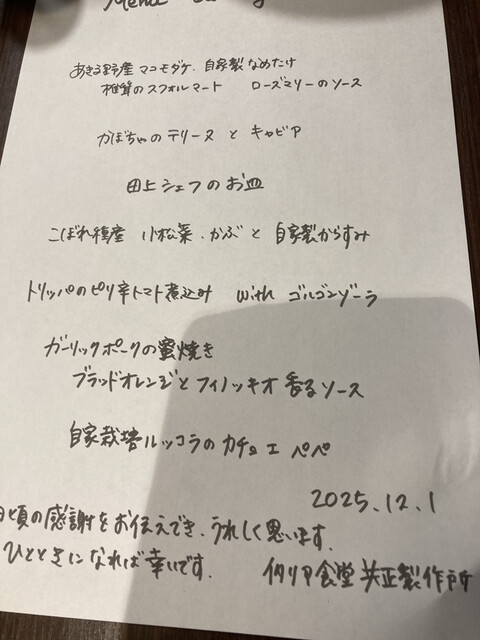 Menu
あきる野産 マコモダケ、自家製 なめたけ
椎茸のスフォルマート ローズマリーのソース
かぼちゃのテリーヌ と キャビア
田上シェフのお皿
こぼれ種産 小松菜、かぶ と 自家製からすみ
トリッパのピリ辛トマト煮込み with ゴルゴンゾーラ
ガーリックポークの蜜焼き
ブラッドオレンジとフィノッキオ香るソース
自家栽培ルッコラのカチョ エ ペペ
2025.12.1
日頃の感謝をお伝えでき、うれしく思います。
ひとときになれば幸いです。 イタリア食堂 共正製作所